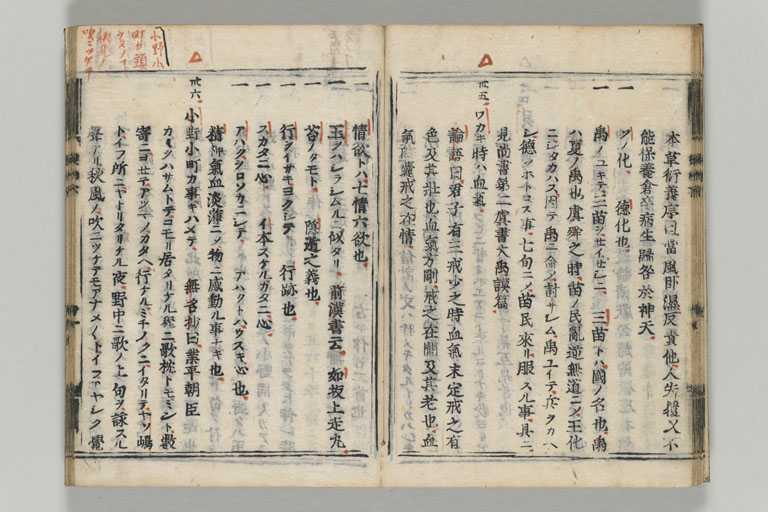 本草衍義序曰當風卧濕反責他人失援又不
能保養倉卒病生歸咎於神天
一 ソノ化 德化也
一 禹ノユキテ三苗ヲセイセシニ 三苗トハ國ノ名也禹
ハ夏ノ禹也虞舜之時苗ノ民亂逆無道ニメ王化
ニシタカハス因テ禹ニ命メ討サシム禹ユイテ兵ヲカヘ
シ德ヲホトコス事七旬ニメ苗民來リ服スル事具ニ
見尚書第二虞書大禹謨篇
卅五 ワカキ時ハ血氣
論語曰君子有三戒少之時血氣未定戒之有
色及其壯也血氣方剛戒之在鬪及其老也血
氣既衰戒之在
情欲トハ七情六欲也
一 玉ヲハシラシムルニ似タリ 前漢書云如坂上走丸
一 苔ノタモト 隱遁之義也
一 行ヲイサキヨクシテ 行跡也
一 スカタニ心 イ本スケルカタニ心
一 アハク
一 精神氣血淡薄ニメ物ニ感動ル事ナキ也
卅六 小野小町カ事キハメテ 無名抄曰業平朝臣
カミヲハヤサムトテコモリ居タリケル程ニ歌枕トモミント數
寄ニコトヨセテアツマノカタヘ行ケルミチノクニイタリテヤソ嶋
トイフ所ニヤトリタリケル夜野中ニ歌ノ上句ヲ詠スル
聲アリ秋風ノ吹ニツケテモアナメ〱トイフアヤシク覺
小野小
町カ